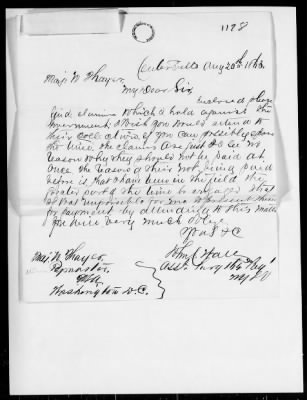 1128
Aug 20th 1863
Maj. W Thayer
My Dear Sir
Enclosed please
find claims which I hold against the
Government which you would attend to
their collection if you can possibly spare
the time. the claims are just & I see no
reason why they should not be paid at
once. the reason of their not being paid
before is that I have been in the field the
greater part of the time &
it was impossible for me to present them
for payment by attending to this matter
you will very much oblige
Yours &c
Maj. W Thayer
Paymaster
Washington D.C.
Hale
Asst Surg